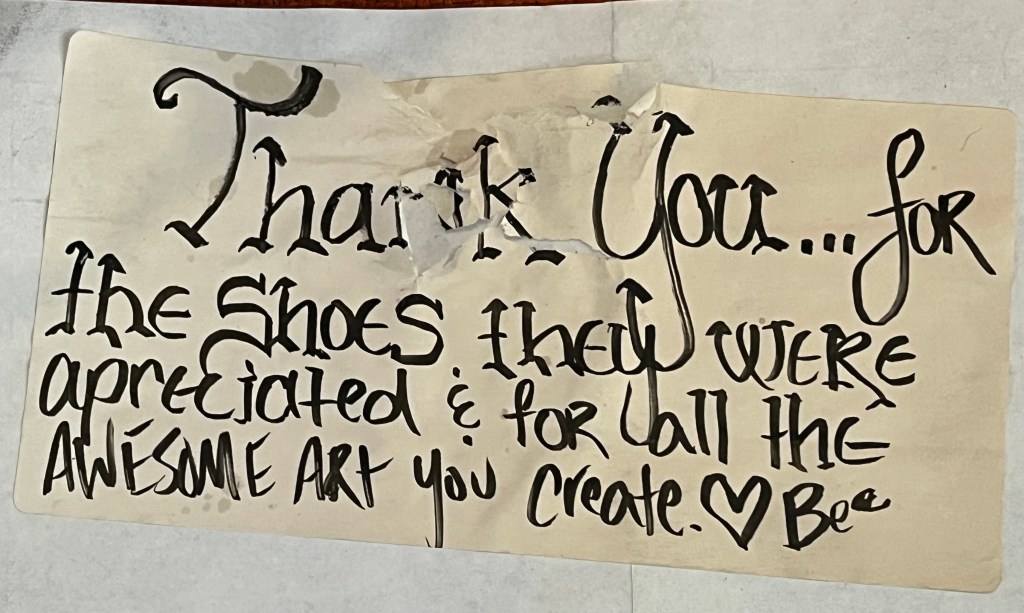 Thank You... for
the Shoes they were
apreciated & for all the
AWESOME ART you Create. ♡ Bee